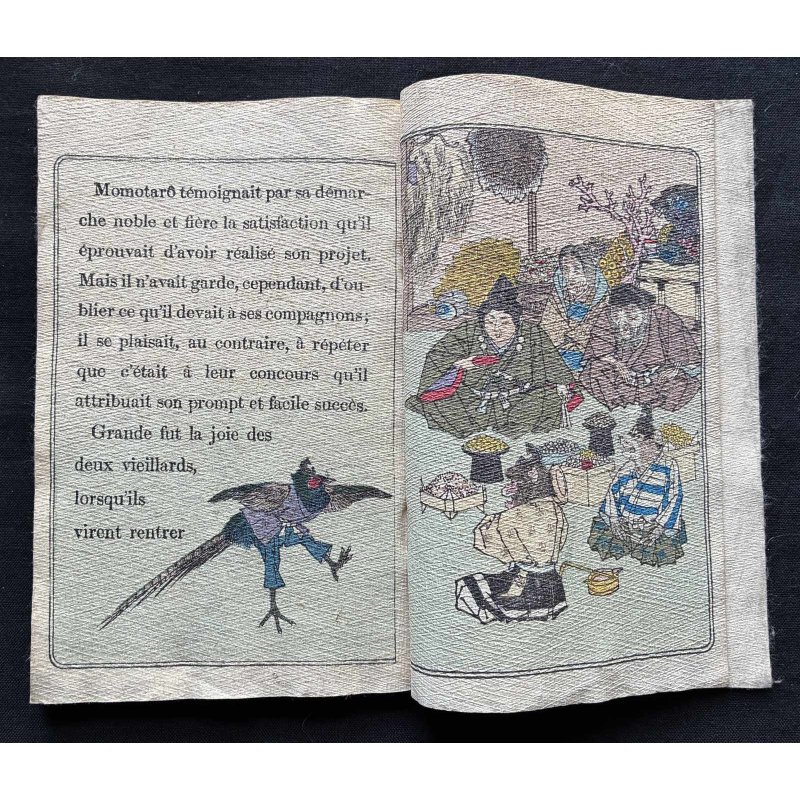 Momotarô témoignait par sa démar-
che noble et fière la satisfaction qu'il
éprouvait d'avoir réalisé son projet.
Mais il n'avait garde, cependant, d'ou-
blier ce qu'il devait à ses compagnons;
il se plaisait, au contraire, à répéter
que c'était à leur concours qu'il
attribuait son prompt et facile succès.
Grande fut la joie des
deux vieillards,
lorsqu'ils
virent rentrer